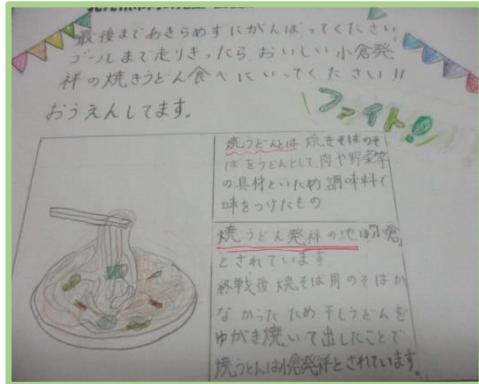 最後まであきらめずにがんばってください
ゴールまで走りきったら おいしい小倉発
祥の焼きうどん食べにいってください!!
おうえんしてます。
ファイト!!
焼うどんとは 焼きそばのそ
ばをうどんとして、肉や野菜等
の具材といため調味料で
味をつけたもの
焼うどん発祥の地は小倉
とされています
終戦後焼そば用のそばが
なかったため、干しうどんを
ゆがき焼いて出したことで
焼うどんは小倉発祥とされています。